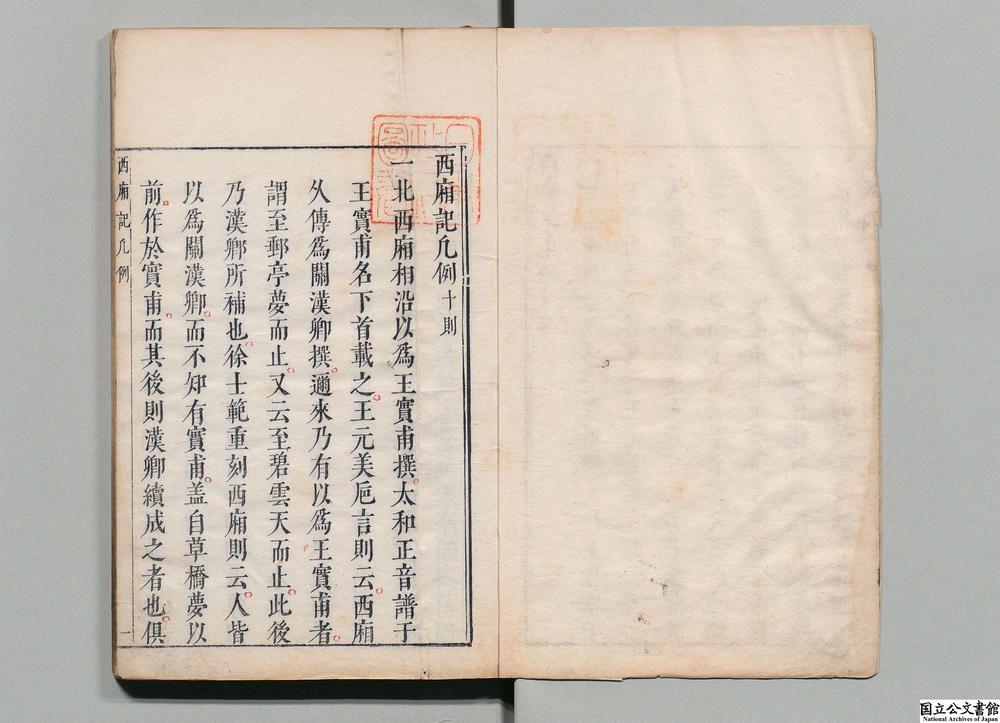 西廂記凡例十則
一北西廂相沿以爲王實甫撰太和正音譜于
王實甫名下首載之王元美巵言則云西廂
久傳爲關漢卿撰邇來乃有以爲王實甫者
謂至郵亭夢而止又云至碧雲天而止此後
乃漢卿所補也徐士範重刻西廂則云人皆
以爲關漢卿而不知有實甫盖自草橋夢以
前作於實甫而其後則漢卿續成之者也俱
西廂記凡例
一
国立公文書館
National Archives of Japan